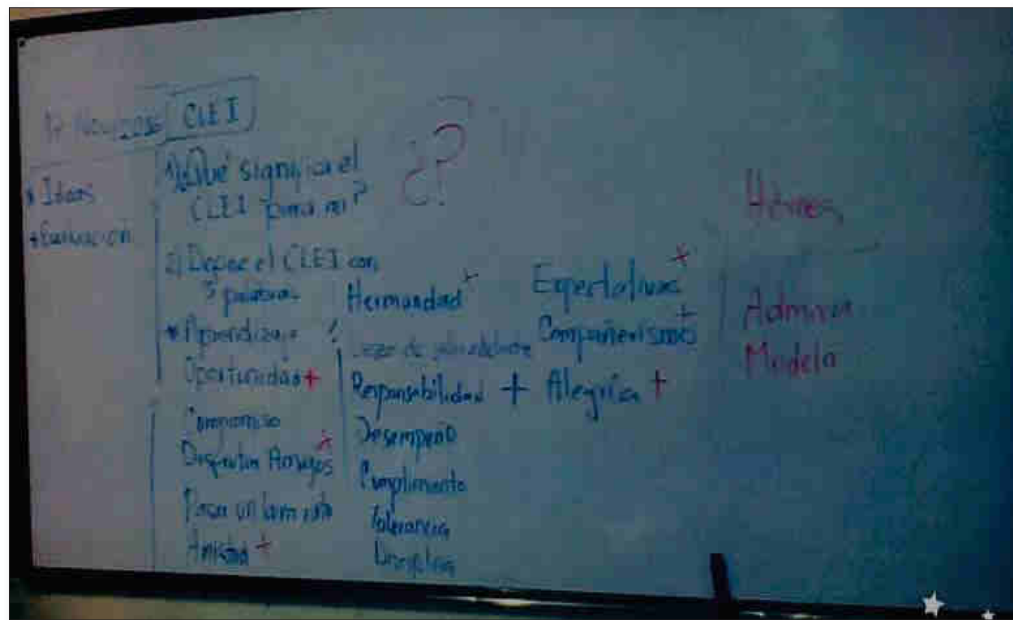 17 Nov/2016 CLEI
* Ideas
* Evaluación
1) ¿Qué significa el
CLEI para mi?
¿?
2) Define el CLEI con
3 palabras
* Aprendizaje
Oportunidad +
Compromiso
Disfrutar Amigos +
Pasar un buen rato
Amistad +
Hermandad +
salir adelante
Responsabilidad +
Desempeño
Cumplimento
Tolerancia
Disciplina
Expectativas +
Compañerismo +
Alegría +
Héroes
Admirar
Modelo